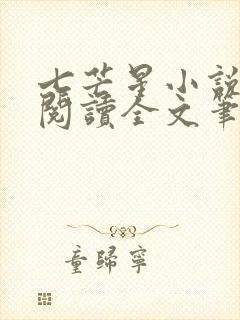 七芒星小說
閱讀全文筆
童歸寧